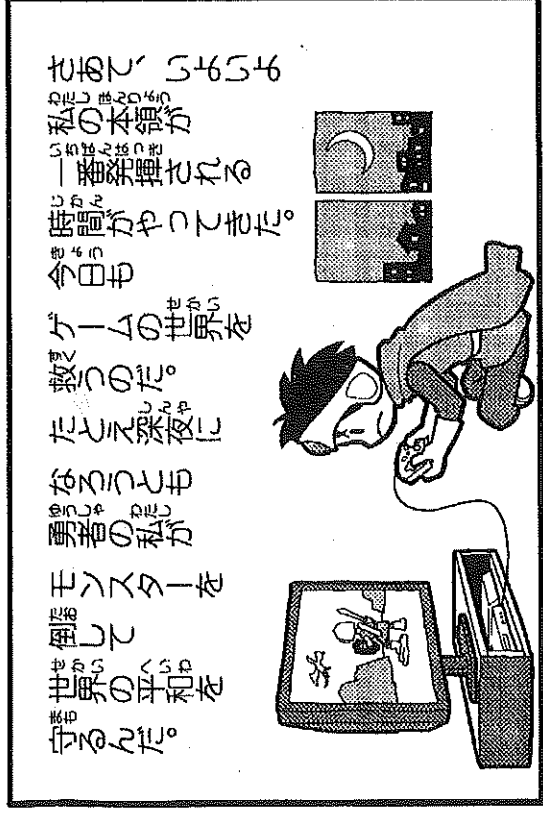 さあて、いよいよ
私の本領が
一番発揮される
時間がやってきた。
今日も
ゲームの世界を
救うのだ。
たとえ深夜に
なろうとも
勇者の私が
モンスターを
倒して
世界の平和を
守るんだ。